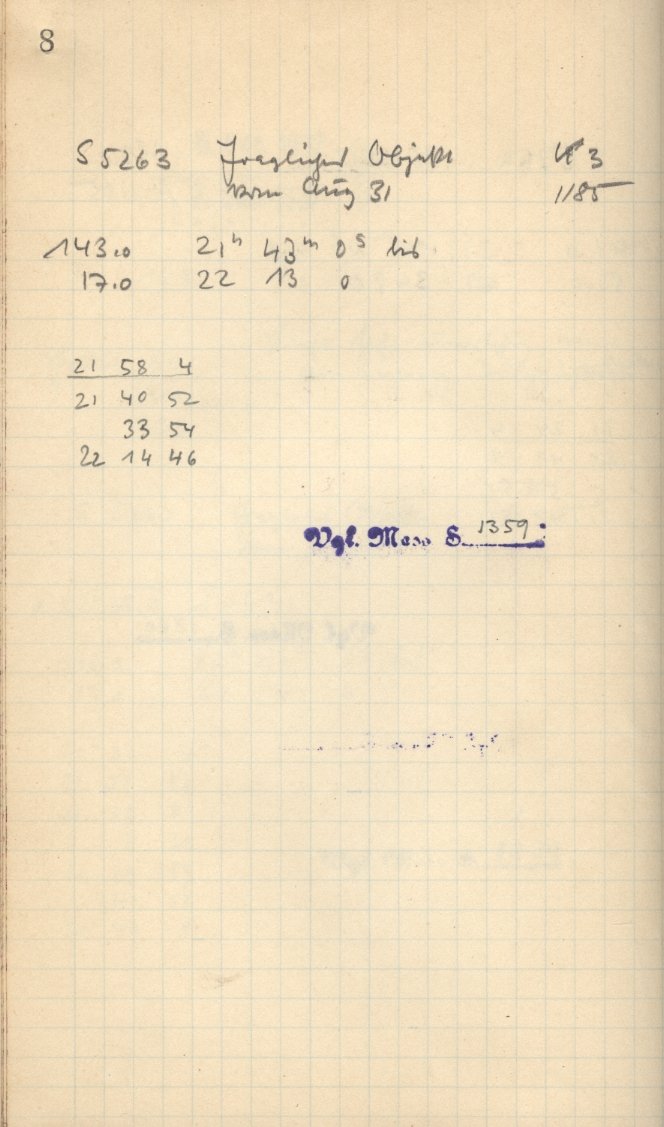 8
S 5263 Fragliches Objekt 3
vom Aug 31 1185
143.0 21h 43m 0s bis
17.0 22 13 0
21 58 4
21 40 52
33 54
22 14 46
Vgl. Mess S. 1359